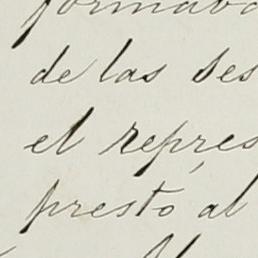 formaba
de las Ses
el repres
prestó al